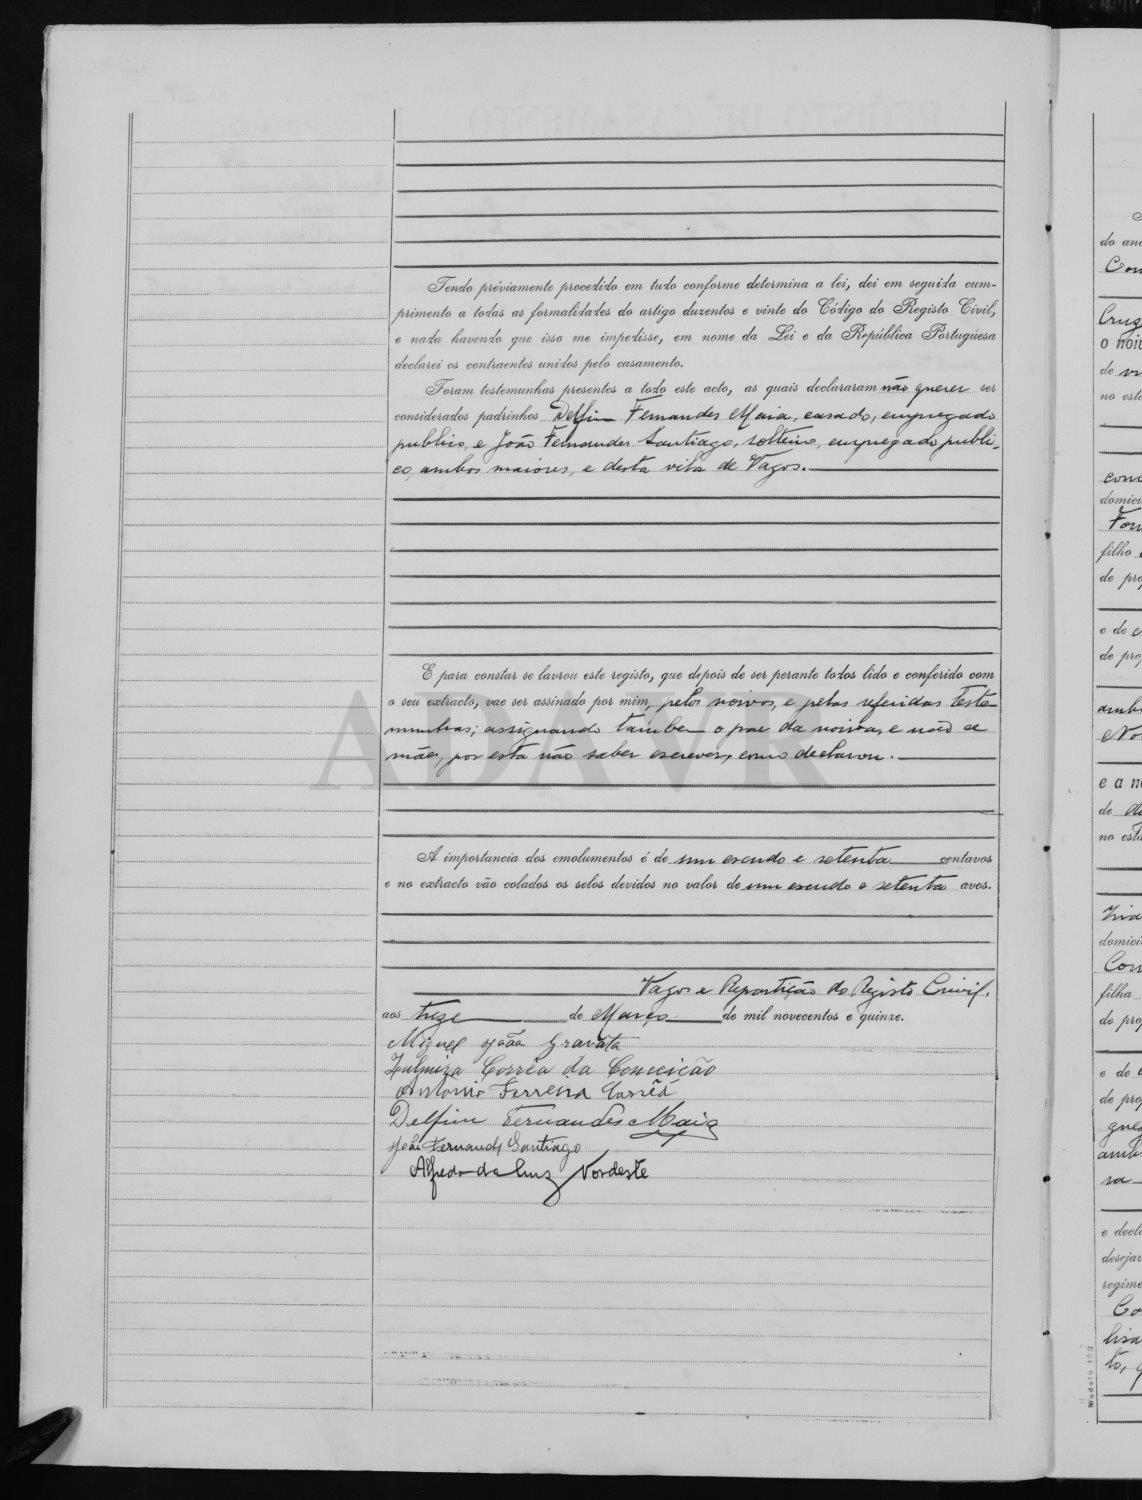 Tendo préviamente procedido em tudo conforme determina a lei, dei em seguida cum-
primento a todas as formalidades do artigo duzentos e vinte do Código do Registo Civil,
e nada havendo que isso me impedisse, em nome da Lei e da República Portuguesa
declarei os contraentes unidos pelo casamento.
Foram testemunhas presentes a todo este acto, as quais declararam não querer ser
considerados padrinhos Delfim Fernandes Maia, casado, empregado
publico, e João Fernandes Santiago, solteiro, empregado publi-
co, ambos maiores, e desta vila de Vagos.
E para constar se lavrou este registo, que depois de ser perante todos lido e conferido com
o seu extracto, vae ser assinado por mim, pelos noivos, e pelas referidas teste-
munhas; assignando tambem o pae da noiva, e não se
mãe, por esta não saber escrever, como declarou.
ADAVR
A importancia dos emolumentos é de um escudo e setenta centavos
e no extracto vão colados os selos devidos no valor de um escudo e setenta avos.
Vagos e Repartição do Registo Civil,
aos treze de Março de mil novecentos e quinze.
Miguel João Gravata
Zulmira Corrêa da Conceição
António Ferreira Corrêa
Delfim Fernandes Maia
João Fernandes Santiago
Alfredo da Cruz Nordeste
do ano
Con
Cruz
o noiv
de vi
no esta
conc
domici
Fon
filho
de pro
e de
de pro
amb
No
e a n
de
no esta
domici
Con
filha
de pro
e de
de pro
amb
ra
e decla
desejar
regime
Co
lisa
to,
Modelo 103